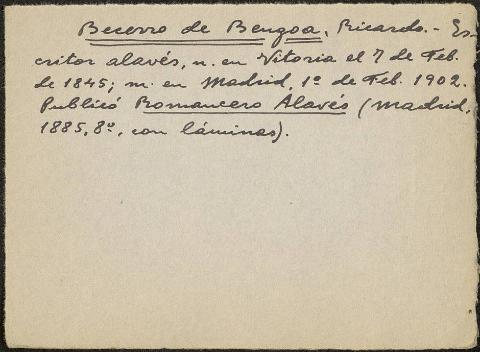 Becerro de Bengoa, Ricardo.- Es-
critor alavés, n. en Vitoria el 7 de Feb.
de 1845; m. en Madrid, 1º de Feb. 1902.
Publicó Romancero Alavés (Madrid,
1885, 8º, con láminas).